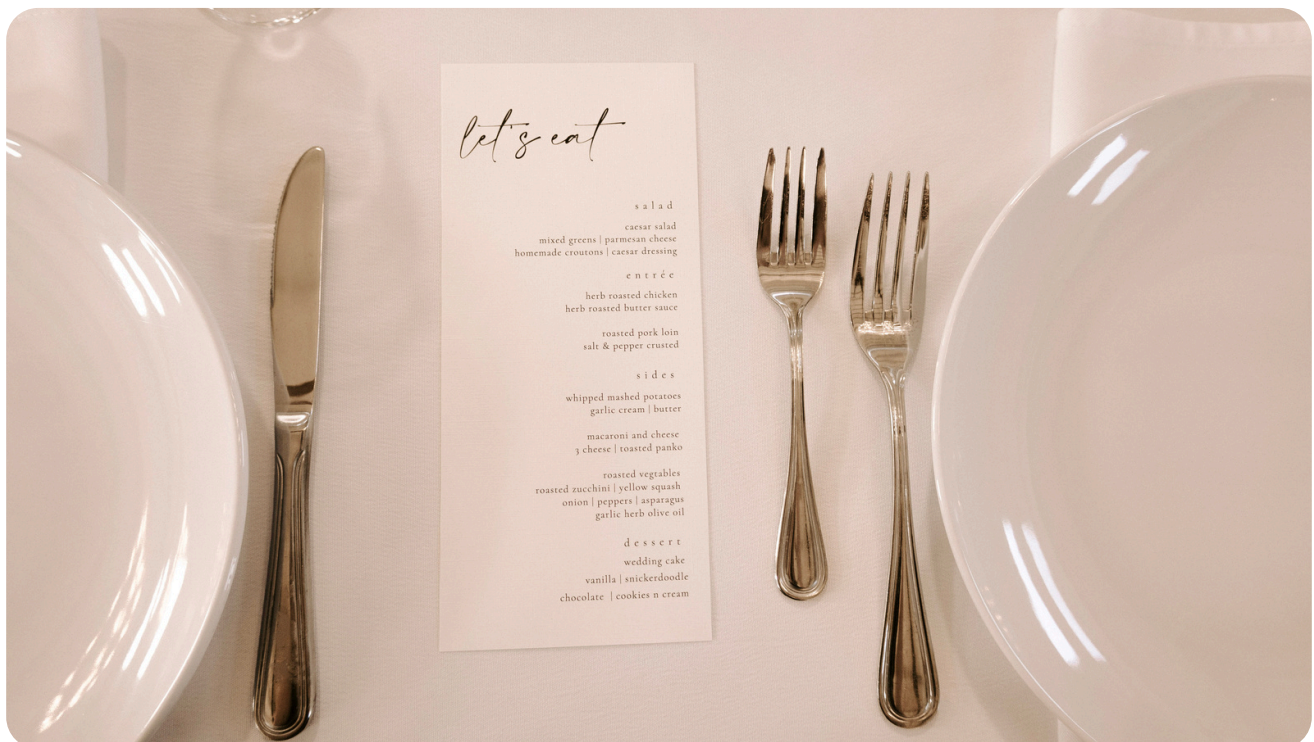 let's eat
salad
caesar salad
mixed greens | parmesan cheese
homemade croutons | caesar dressing
entrée
herb roasted chicken
herb roasted butter sauce
roasted pork loin
salt & pepper crusted
sides
whipped mashed potatoes
garlic cream | butter
macaroni and cheese
3 cheese | toasted panko
roasted vegtables
roasted zucchini | yellow squash
onion | peppers | asparagus
garlic herb olive oil
dessert
wedding cake
vanilla | snickerdoodle
chocolate | cookies n cream